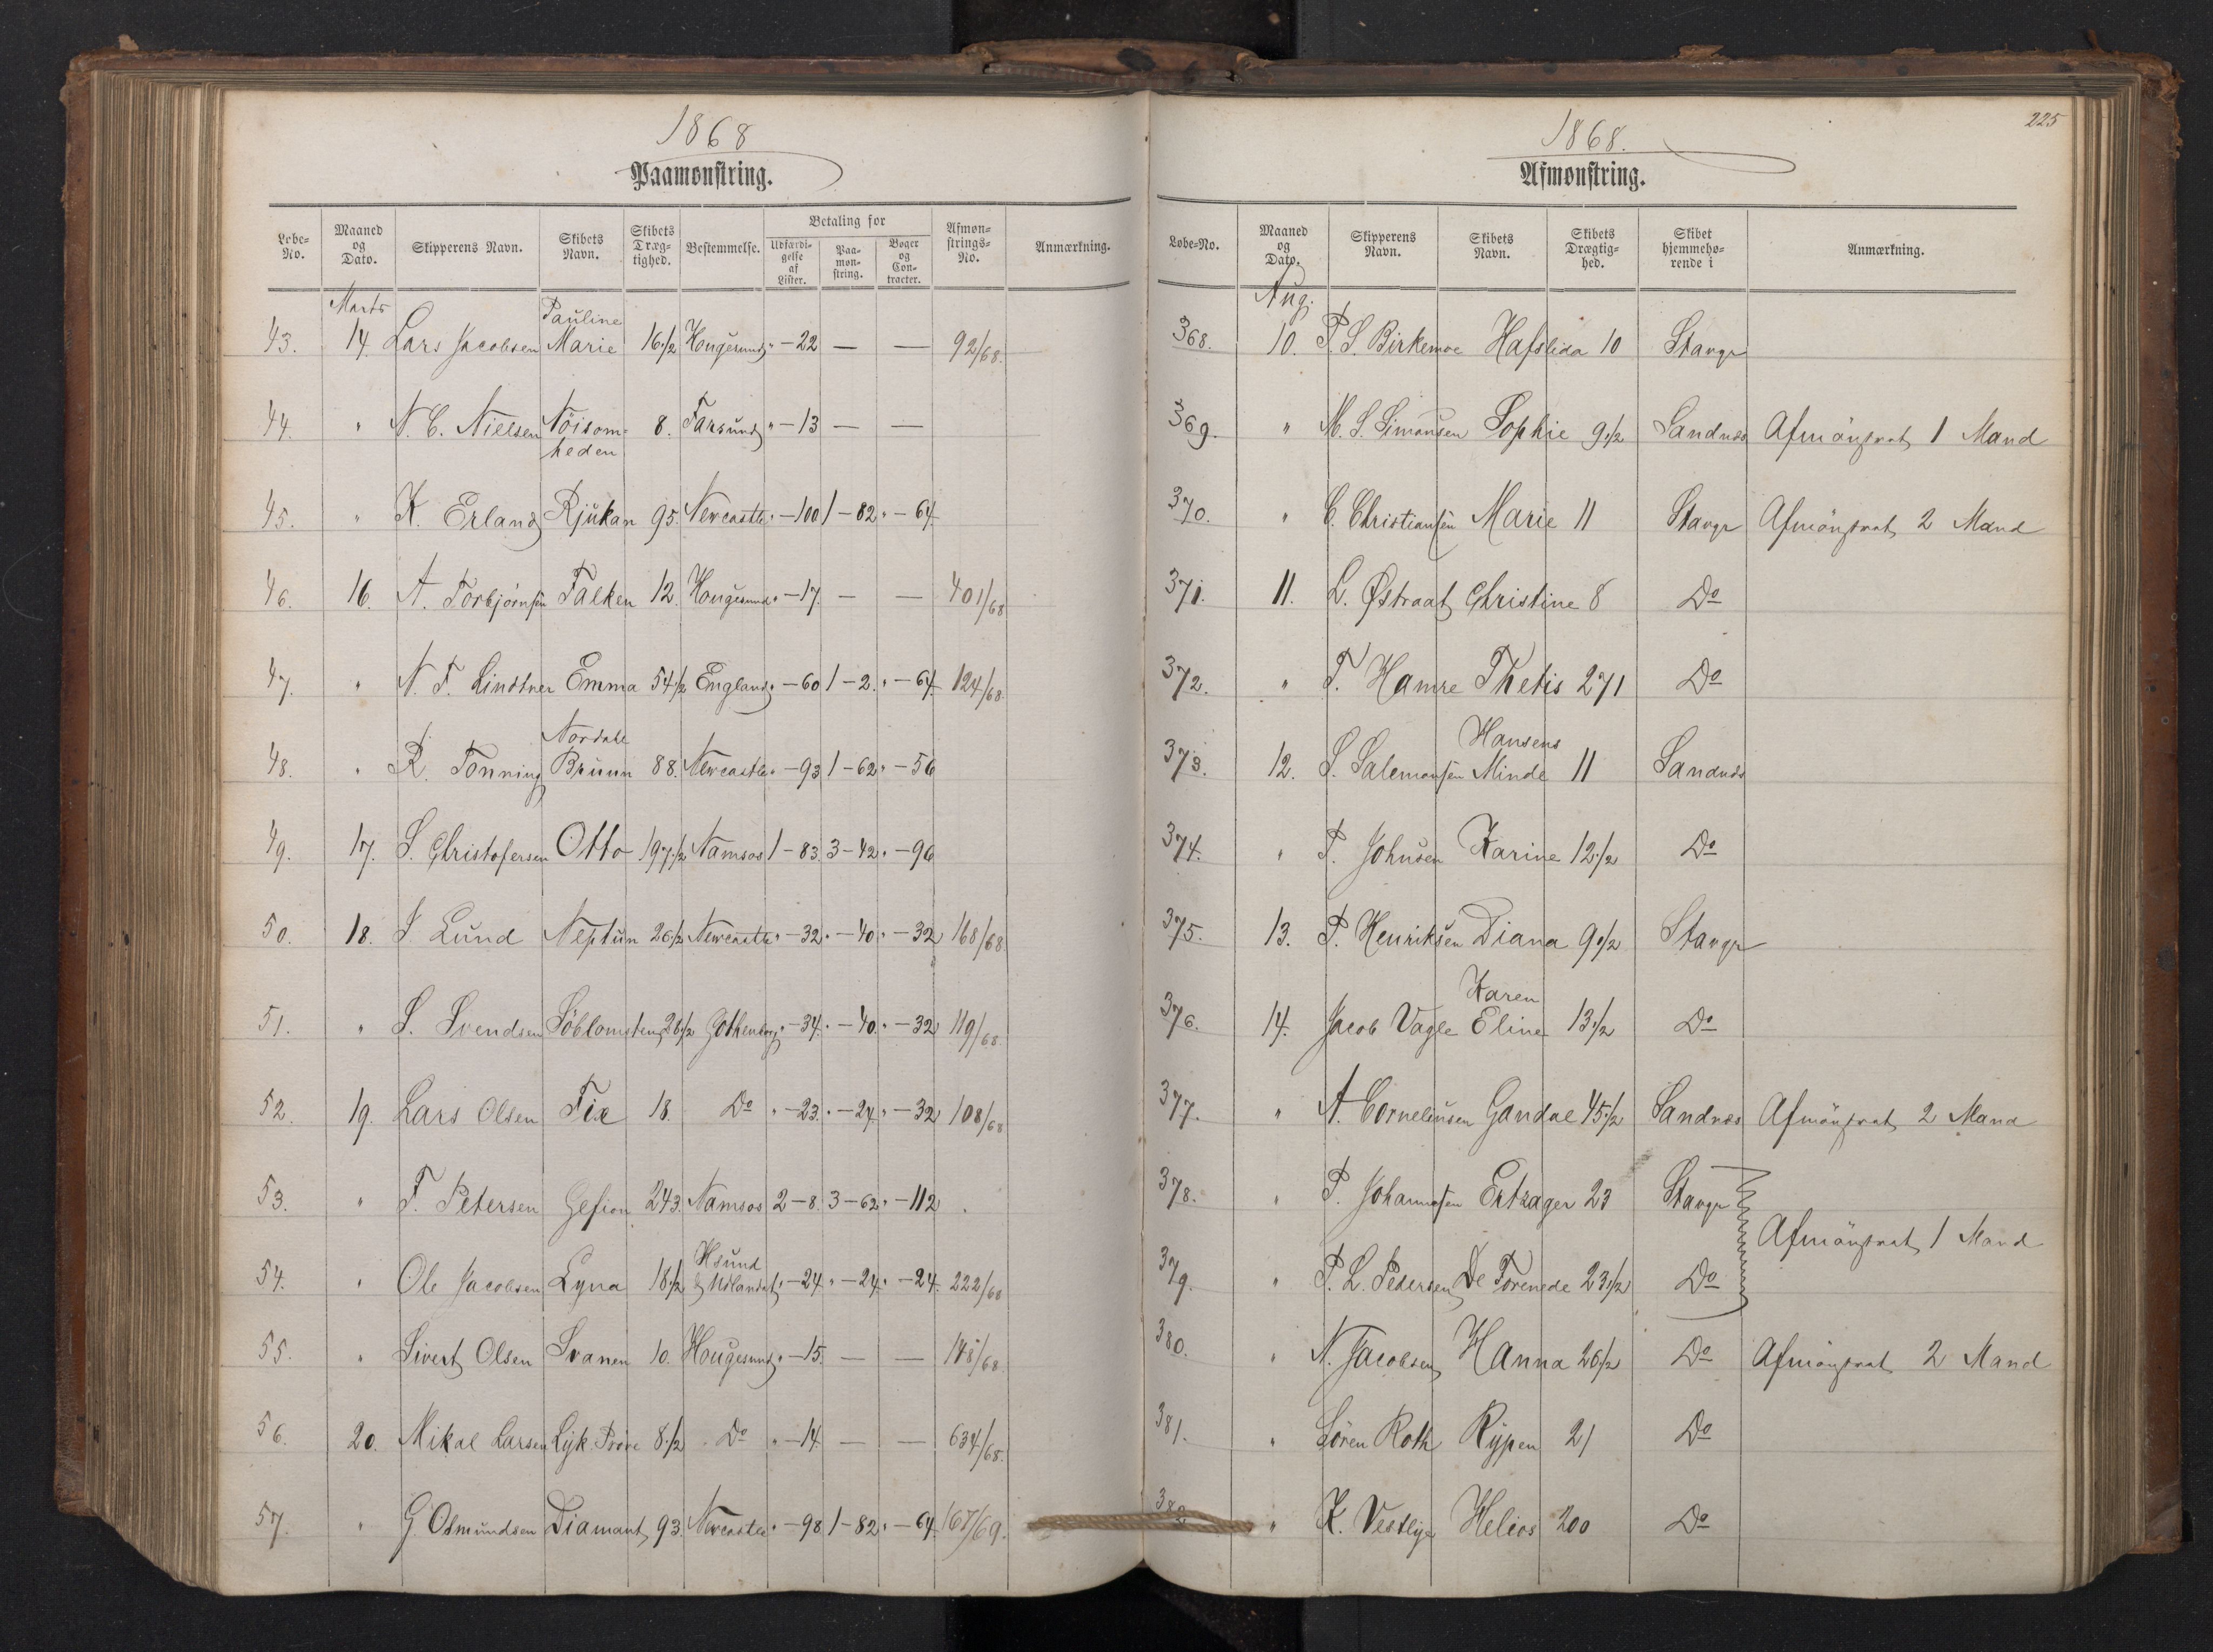 1868
Paamønstring.
Løbe-No. Maaned og Dato. Skipperens Navn. Skibets Navn. Skibets Dræg-tighed. Bestemmelse. Betaling for Udfærdi-gelse af Lister. Paa-møn-string. Bøger og Con-tracter. Afmøn-strings-No. Anmærkning.
Marts
43. 14. Lars Jacobsen Pauline Marie 16 1/2 Hougesund " - 22 — — 92/68.
44. " N. C. Nielsen Nöisom-heden 8. Farsund " - 13 — —
45. " K. Erland Rjukan 95. Newcastle " - 100 1 - 82 " - 64.
46. 16. A. Torbjörnsen Falken 12. Hougesund " - 17. — — 401/68
47. " N. T. Lindtner Emma 54 1/2 England " - 60 1 - 2. " - 64. 124/68
48. " R. Tonning Nordahl Bruun 88. Newcastle " - 93 1 - 62 " - 56
49. 17. S. Christofersen Otto 197 1/2 Namsos 1 - 83. 3 - 42 " - 96
50. 18. J. Lund Neptun 26 1/2 Newcastle " - 32 " - 40 " - 32 168/68
51. " S. Svendsen Söblomsten 28 1/2 Gothenborg " - 34. " - 40. " - 32 119/68.
52. 19. Lars Olsen Fix 18. Do " - 23. " - 24. " - 32 108/68
53. " F. Petersen Gefion 243. Namsos 2 - 8. 3 - 62 " - 112.
54. " Ole Jacobsen Lyna 18 1/2 Hsund & Udlandet " - 24. " - 24. " - 24. 222/68
55. " Sivert Olsen Svanen 10. Hougesund " - 15. — — 148/68
56. 20. Mikal Larsen Lyk. Pröve 8 1/2 Do " - 14. — — 634/68.
57. " G Osmundsen Diamant 93. Newcastle " - 98. 1 - 82 " - 64. 167/69.
225
1868.
Afmønstring.
Løbe-No. Maaned og Dato. Skipperens Navn. Skibets Navn. Skibets Drægtig-hed. Skibet hjemmehø-rende i Anmærkning.
Aug.
368. 10. P. S. Birkemoe Hafslida 10 Stavgr
369. " M. S. Simonsen Sophie 9 1/2 Sandnæs Afmönstrat 1 Mand
370. " C. Christiansen Marie 11 Stavgr Afmönstrat 2 Mand
371. 11. L. Østraat Christine 8 Do
372. " T. Hamre Thetis 271 Do
373. 12. S. Salemonsen Hansens Minde 11 Sandnæs
374. " P. Johnsen Karine 12 1/2 Do
375. 13. P. Henriksen Diana 9 1/2 Stavgr
376. 14. Jacob Vagle Karen Eline 13 1/2 Do
377. " A. Corneliusen Gandal 45 1/2 Sandnæs Afmönstrat 2 Mand
378. " P. Johannesen Ertzager 23 Stavgr
Afmönstrat 1 Mand
379. " P. L. Pedersen De Forenede 23 1/2 Do
380. " N. Jacobsen Hanna 26 1/2 Do Afmönstrat 2 Mand
381. " Sören Roth Rypen 21 Do
382 " K. Vestlye Helios 200 Do